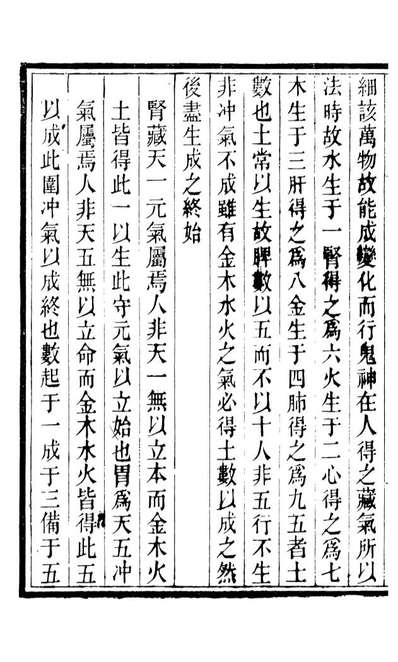 細該萬物故能成變化而行鬼神在人得之藏氣所以
法時故水生于一腎得之爲六火生于二心得之爲七
木生于三肝得之爲八金生于四肺得之爲九五者土
數也土常以生故脾數以五而不以十人非五行不生
非冲氣不成雖有金木水火之氣必得土數以成之然
後盡生成之終始
腎藏天一元氣屬焉人非天一無以立本而金木火
土皆得此一以生此守元氣以立始也胃爲天五冲
氣屬焉人非天五無以立命而金木水火皆得此五
以成此圍冲氣以成終也數起于一成于三備于五